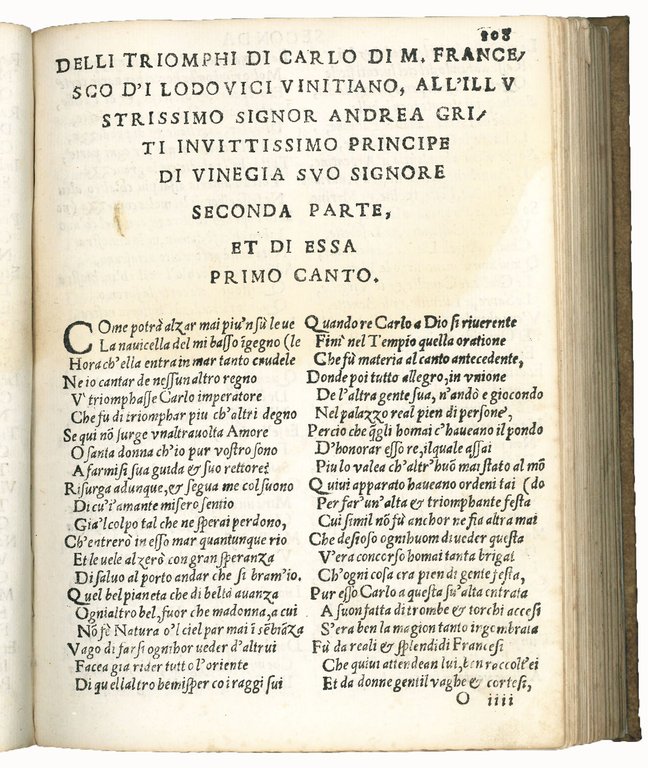 108
DELLI TRIOMPHI DI CARLO DI M. FRANCE/
SCO D'I LODOVICI VINITIANO, ALL'ILLV
STRISSIMO SIGNOR ANDREA GRI/
TI INVITTISSIMO PRINCIPE
DI VINEGIA SVO SIGNORE
SECONDA PARTE,
ET DI ESSA
PRIMO CANTO.
COme potrà alzar mai piu'n sù le ue
La nauicella del mi basso igegno (le
Hora ch'ella entra in mar tanto crudele
Ne io cantar de nessun altro regno
V' triomphasse Carlo imperatore
Che fu di triomphar piu ch'altri degno
Se qui nō surge vnaltrauolta Amore
O santa donna ch'io pur vostro sono
A farmisi sua guida & suo rettore?
Risurga adunque, & segua me col suono
Di cu'i amante misero sentio
Gia'l colpo tal che ne sperai perdono,
Ch'entrerò in esso mar quantunque rio
Et le uele alzerò con gran speranza
Di saluo al porto andar che si bram'io.
Quel bel pianeta che di beltà auanza
Ogni altro bel, fuor che madonna, a cui
Nō fè Natura o'l ciel par mai ī sēbiāza
Vago di farsi ognihor ueder d'altrui
Facea gia rider tutto l'oriente
Di quell altro hemisper co i raggi sui
Quando re Carlo a Dio si riuerente
Finì nel Tempio quella oratione
Che fù materia al canto antecedente,
Donde poi tutto allegro, in vnione
De l'altra gente sua, n'andò e giocondo
Nel palazzo real pien di persone,
Percio che q̄gli homai c'haueano il pondo
D'honorar esso re, il quale assai
Piu lo valea ch'altr'huō mai stato al mō
Quiui apparato haueano ordeni tai (do
Per far'un'alta & triomphante festa
Cui simil nō fù anchor ne fia altra mai
Che desioso ognihuom di ueder questa
V'era concorso homai tanta briga
Ch'ogni cosa era pien di gente festa,
Pur esso Carlo a questa su'alta entrata
A suon fatta di trombe & torchi accesi
S'era ben la magion tanto ingombrata
Fù da reali & splendidi Francesi
Che quiui attendean lui, ben raccolt'ei
Et da donne gentil vaghe & cortesi,
O iiii